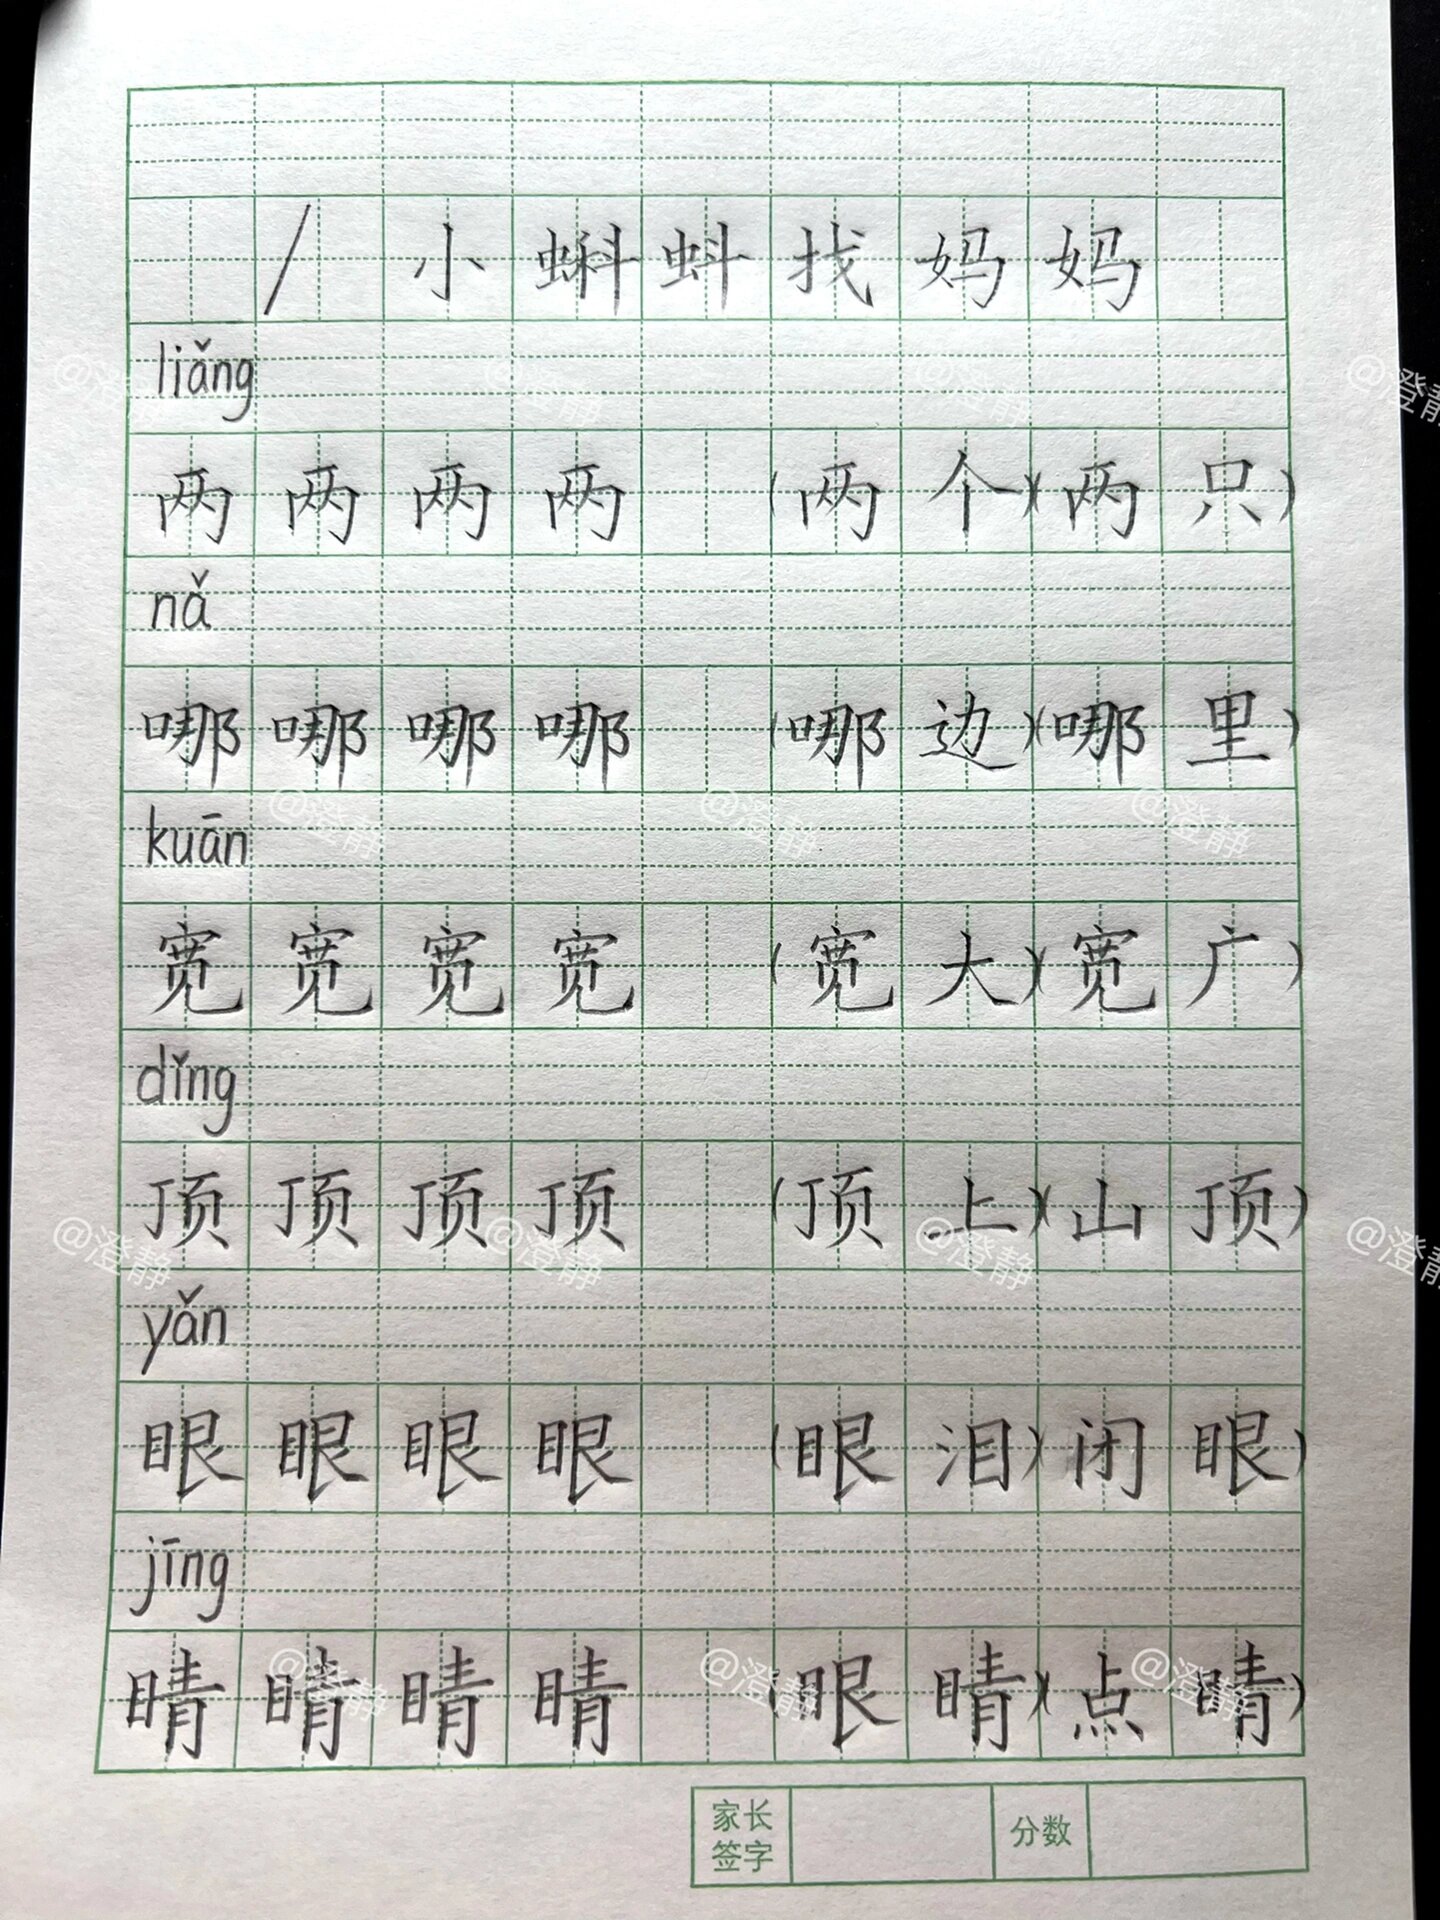 / 小蝌蚪找妈妈
liǎng
两 两 两 两 (两个)(两只)
nǎ
哪 哪 哪 哪 (哪边)(哪里)
kuān
宽 宽 宽 宽 (宽大)(宽广)
dǐng
顶 顶 顶 顶 (顶上)(山顶)
yǎn
眼 眼 眼 眼 (眼泪)(闭眼)
jīng
睛 睛 睛 睛 (眼睛)(点睛)
家长签字 分数
@澄静